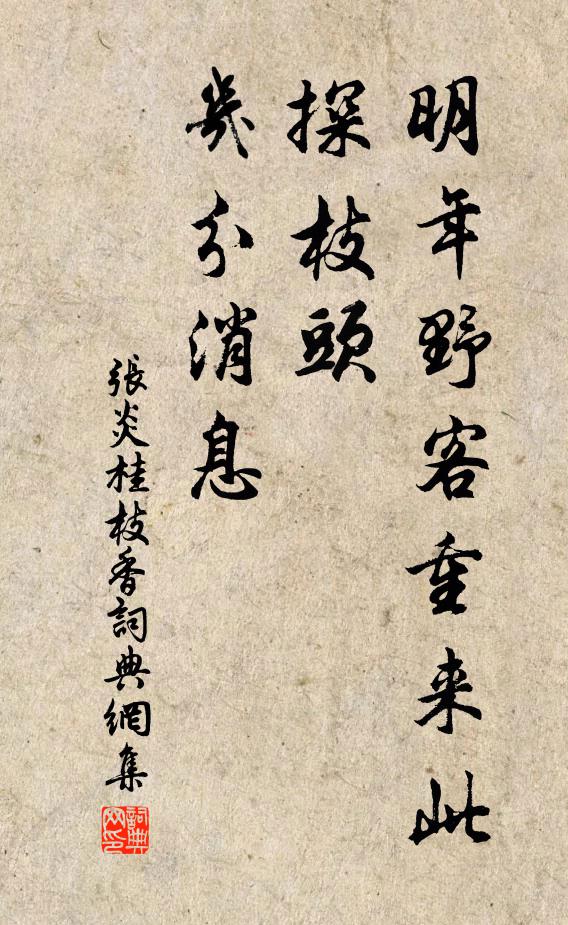 明年野客重来此
探枝頭
幾分消息
張炎桂枝香詞典網集
詞典网印